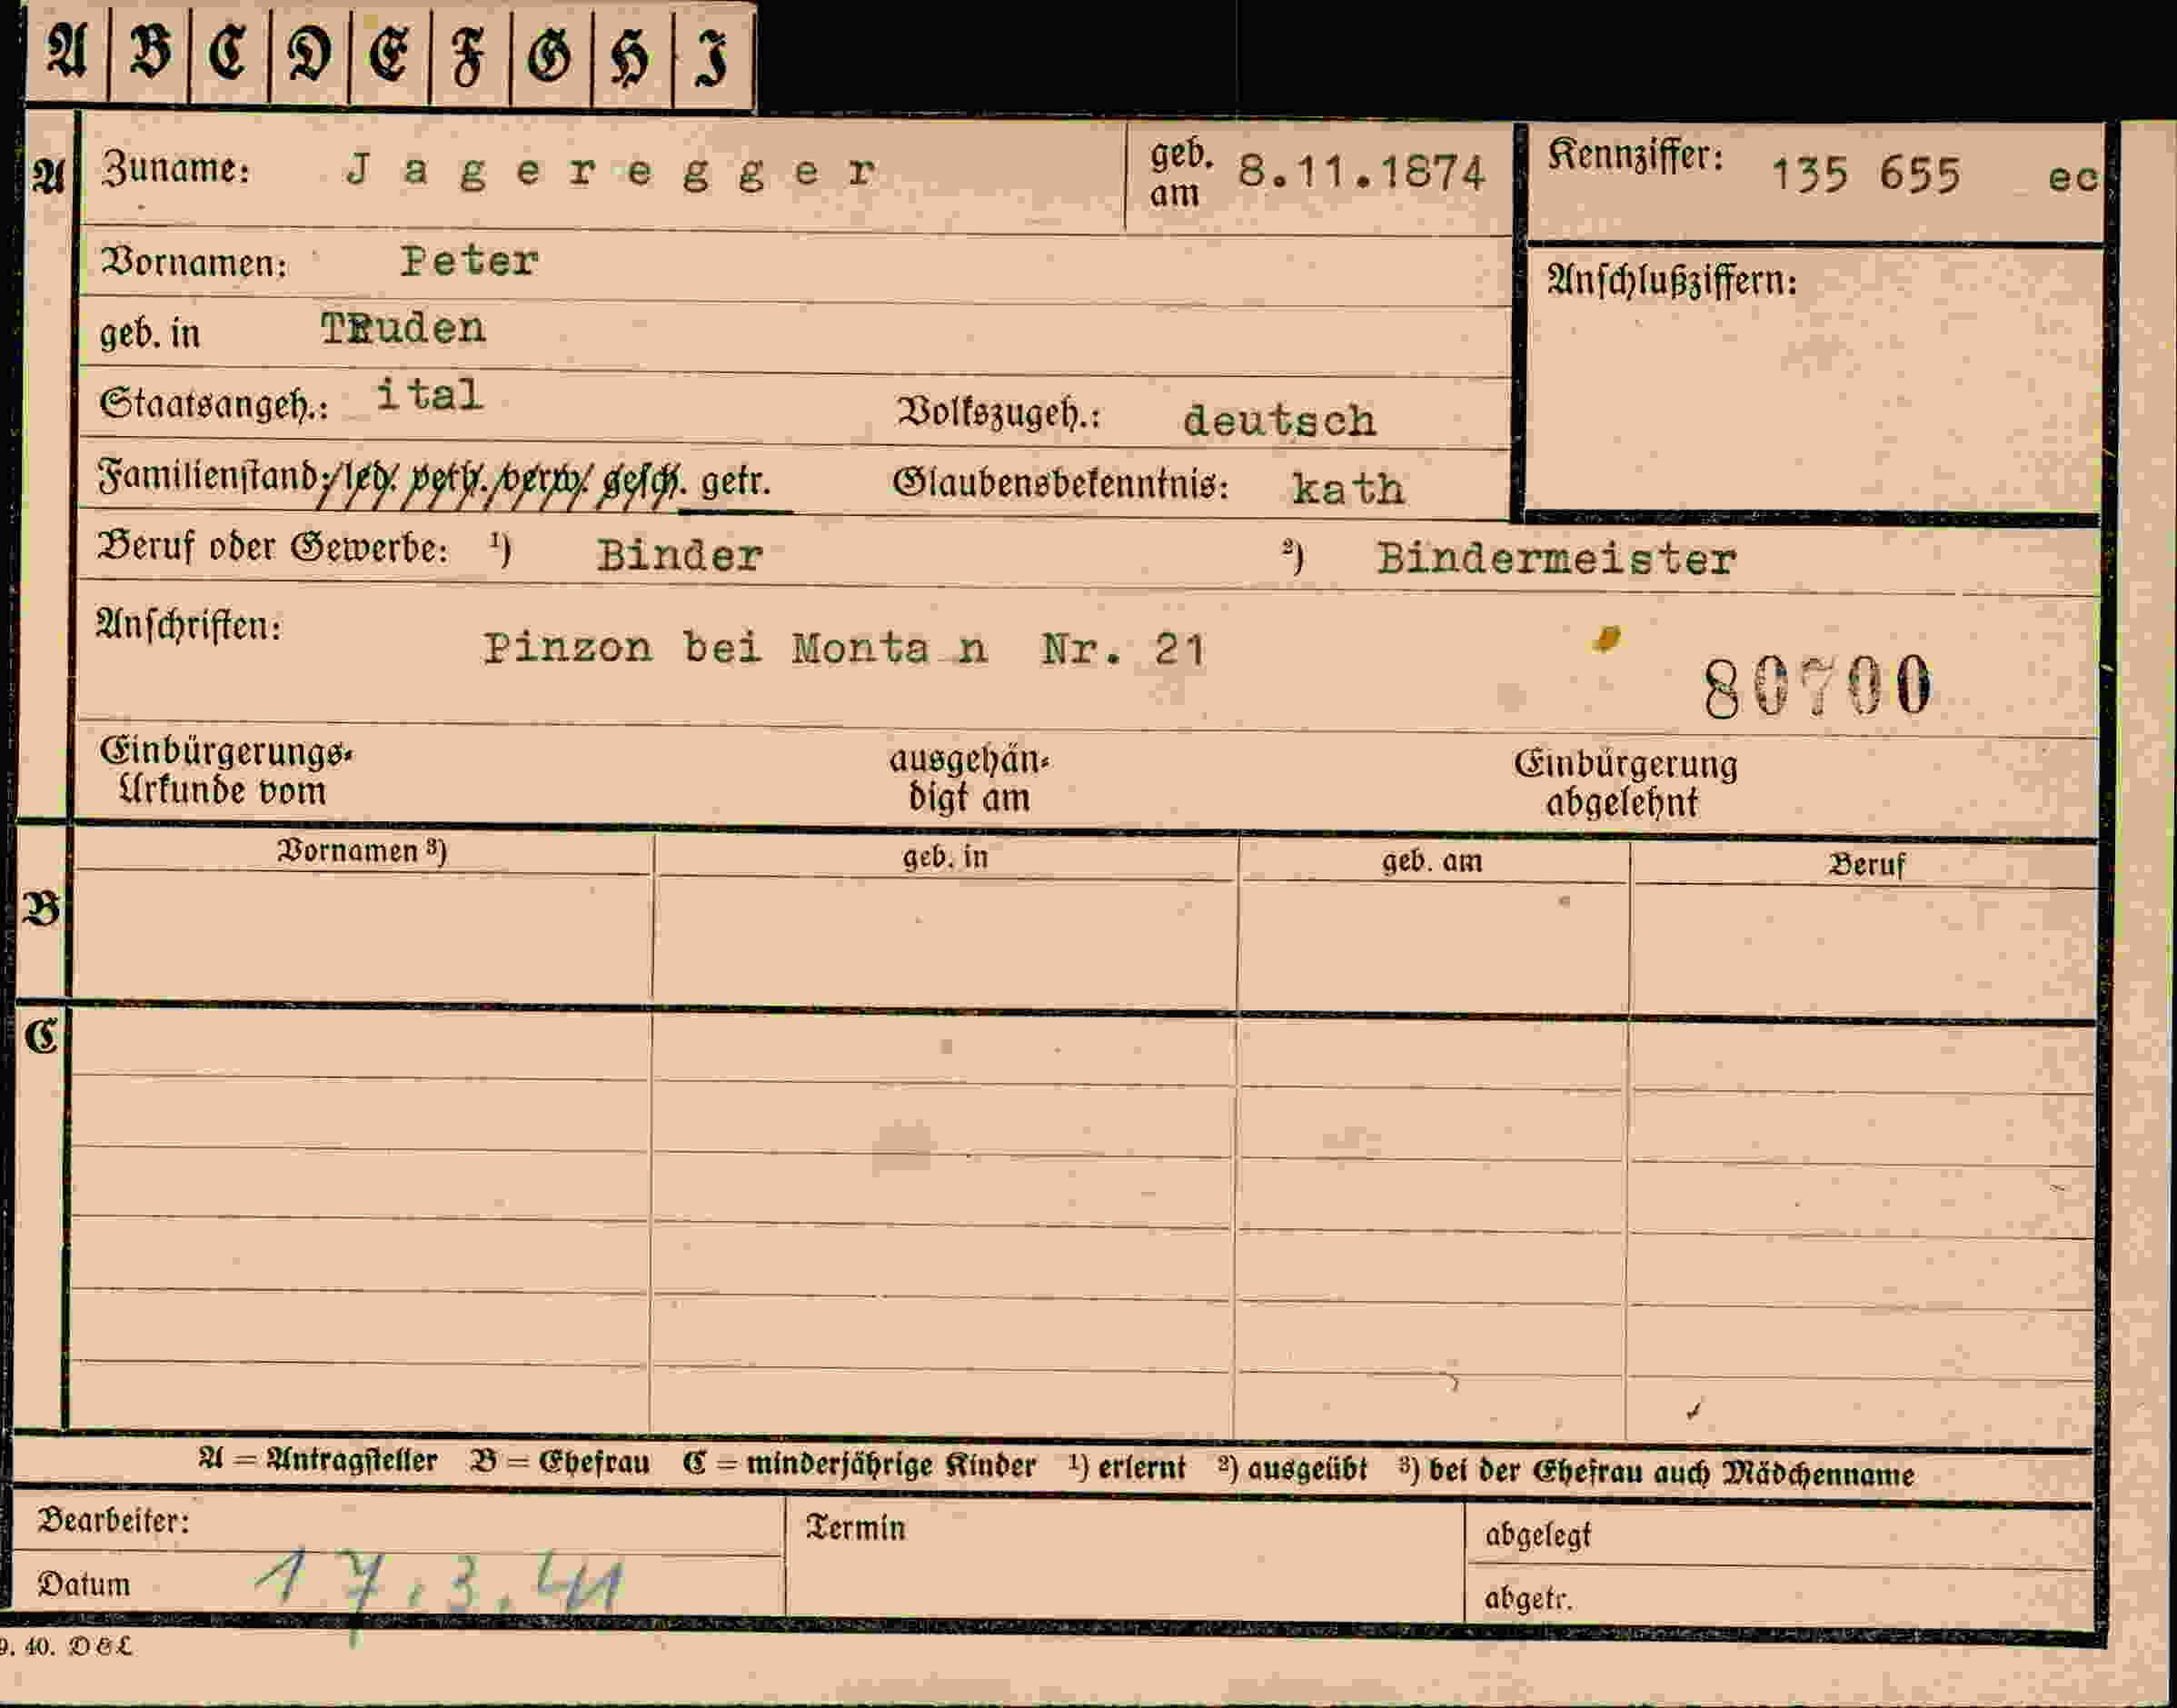 A B C D E F G H I
A Zuname: Jageregger geb. am 8.11.1874 Kennziffer: 135 655 ec
Vornamen: Peter
Anschlußziffern:
geb. in Truden
Staatsangeh.: ital Volkszugeh.: deutsch
Familienstand: led. verh. verw. gesch. getr. Glaubensbekenntnis: kath
Beruf oder Gewerbe: ¹) Binder ²) Bindermeister
Anschriften: Pinzon bei Monta n Nr. 21
80700
Einbürgerungs-Urkunde vom ausgehän-digt am Einbürgerung abgelehnt
Vornamen ³) geb. in geb. am Beruf
B
C
A = Antragsteller B = Ehefrau C = minderjährige Kinder ¹) erlernt ²) ausgeübt ³) bei der Ehefrau auch Mädchenname
Bearbeiter: Termin abgelegt
Datum 17.3.41 abgetr.
9. 40. D&L